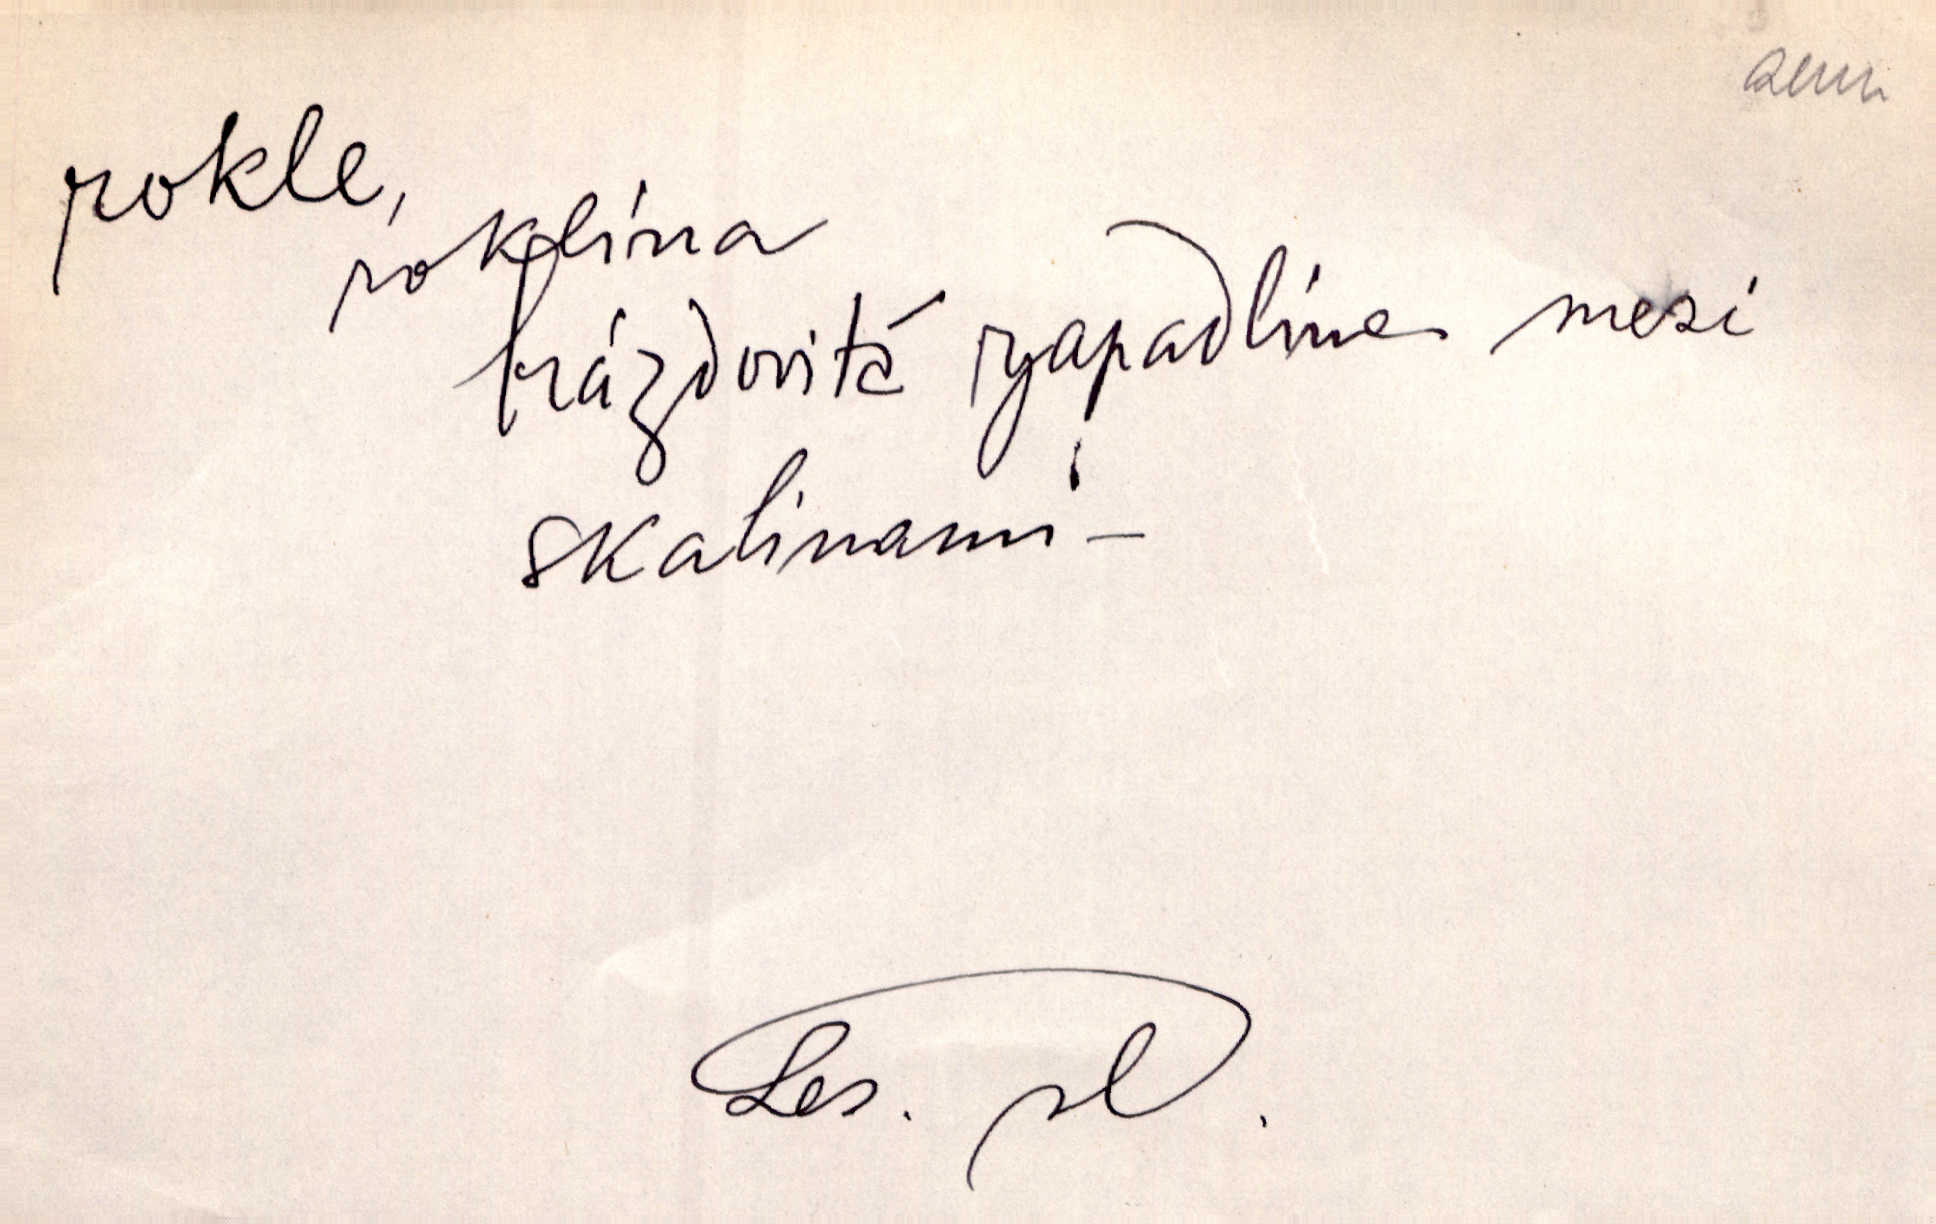 zem
rokle,
roklina
brázdovitá zapadlina mezi
skalinami -
Les. sl.